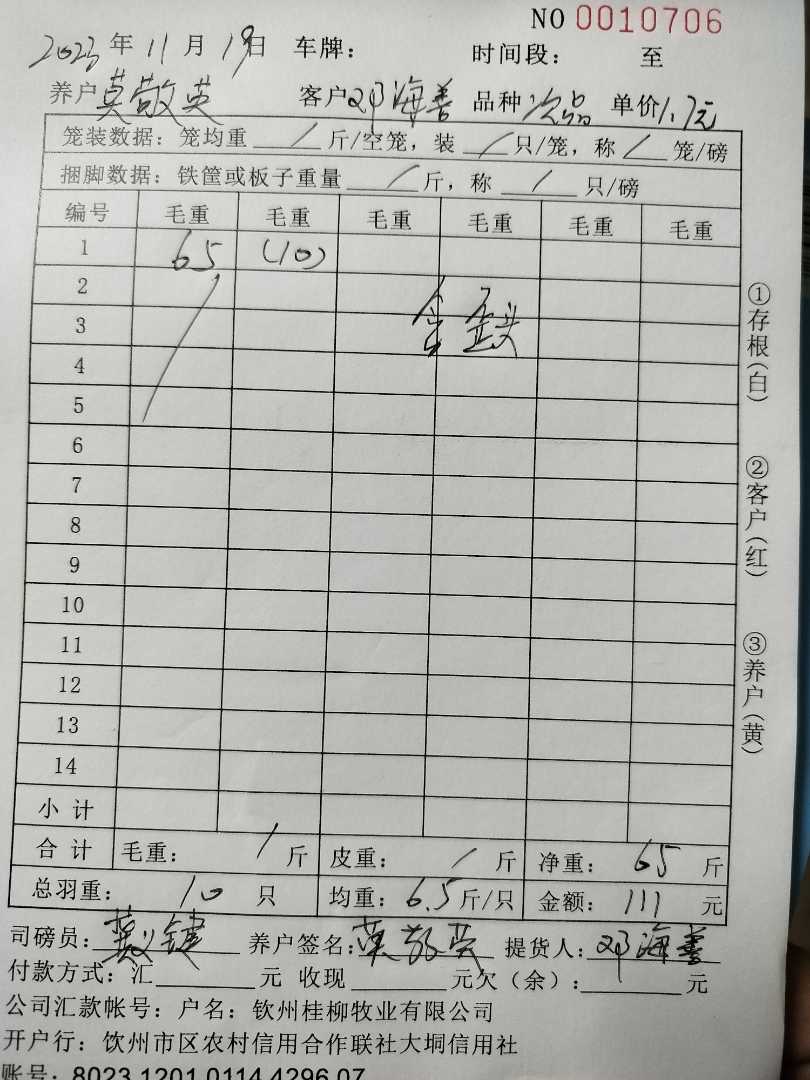 NO 0010706
2023年11月19日 车牌: 时间段: 至
养户莫敬英 客户邓海善 品种次品 单价1.7元
笼装数据: 笼均重/斤/空笼, 装/只/笼, 称/笼/磅
捆脚数据: 铁筐或板子重量/斤, 称/只/磅
编号 毛重 毛重 毛重 毛重 毛重 毛重
1 65 (10)
2
3
4
5
6
7
8
9
10
11
12
13
14
小计
合计 毛重: /斤 皮重: /斤 净重: 65斤
总羽重: 10只 均重: 6.5斤/只 金额: 111元
司磅员: 养户签名: 莫敬英 提货人: 邓海善
付款方式: 汇______元 收现______元欠(余):______元
公司汇款帐号: 户名: 钦州桂柳牧业有限公司
开户行: 饮州市区农村信用合作联社大垌信用社
账号: 8023 1201 0114 4296 07
①存根(白)
②客户(红)
③养户(黄)